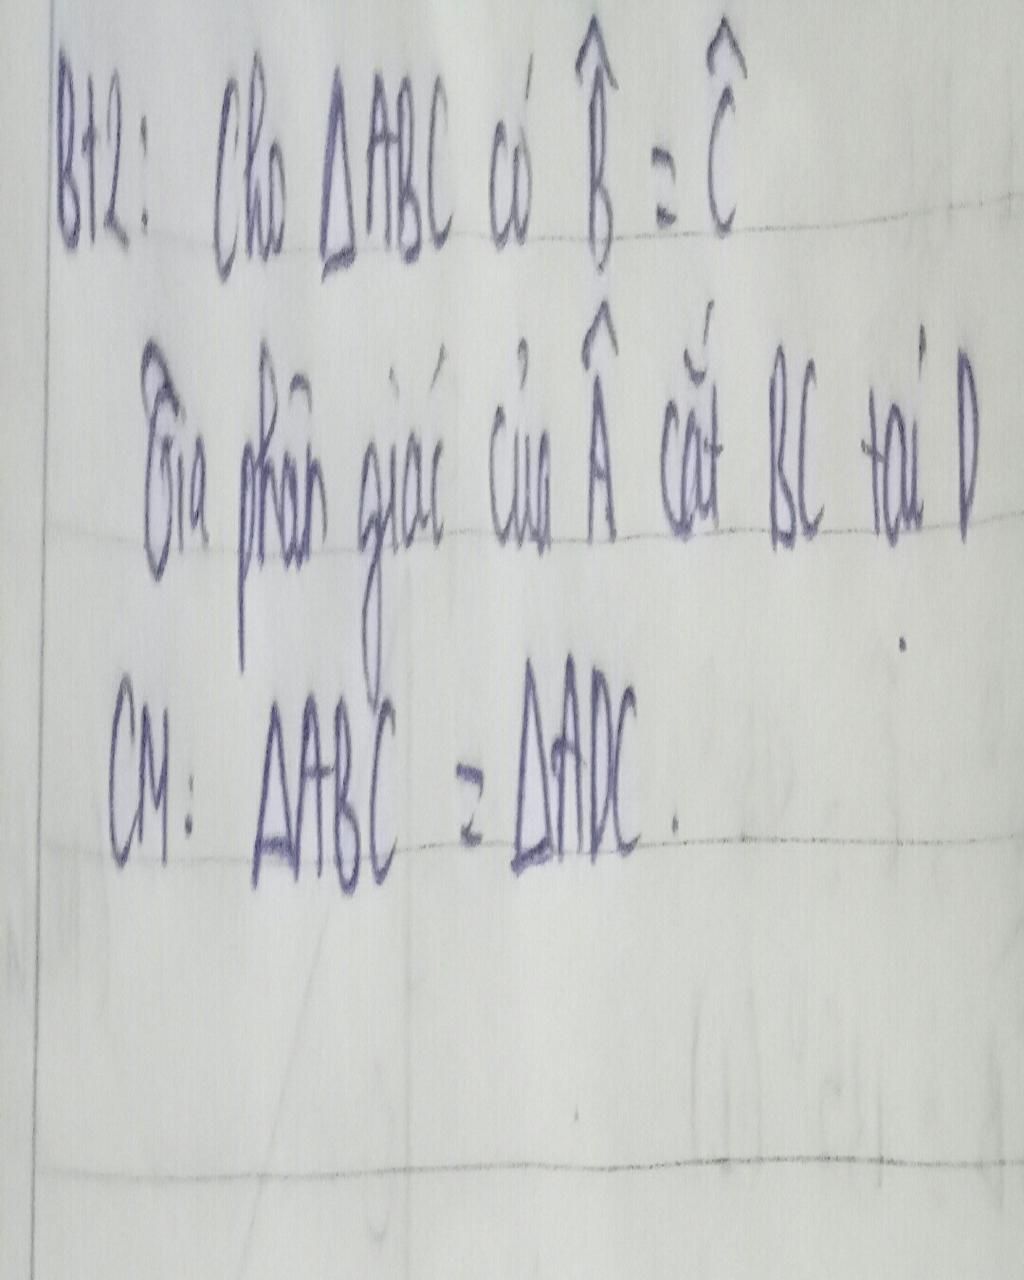 Bt2: Cho ΔABC có B̂ = Ĉ
Tia phân giác của Â cắt BC tại D
CM: ΔABC = ΔADC.